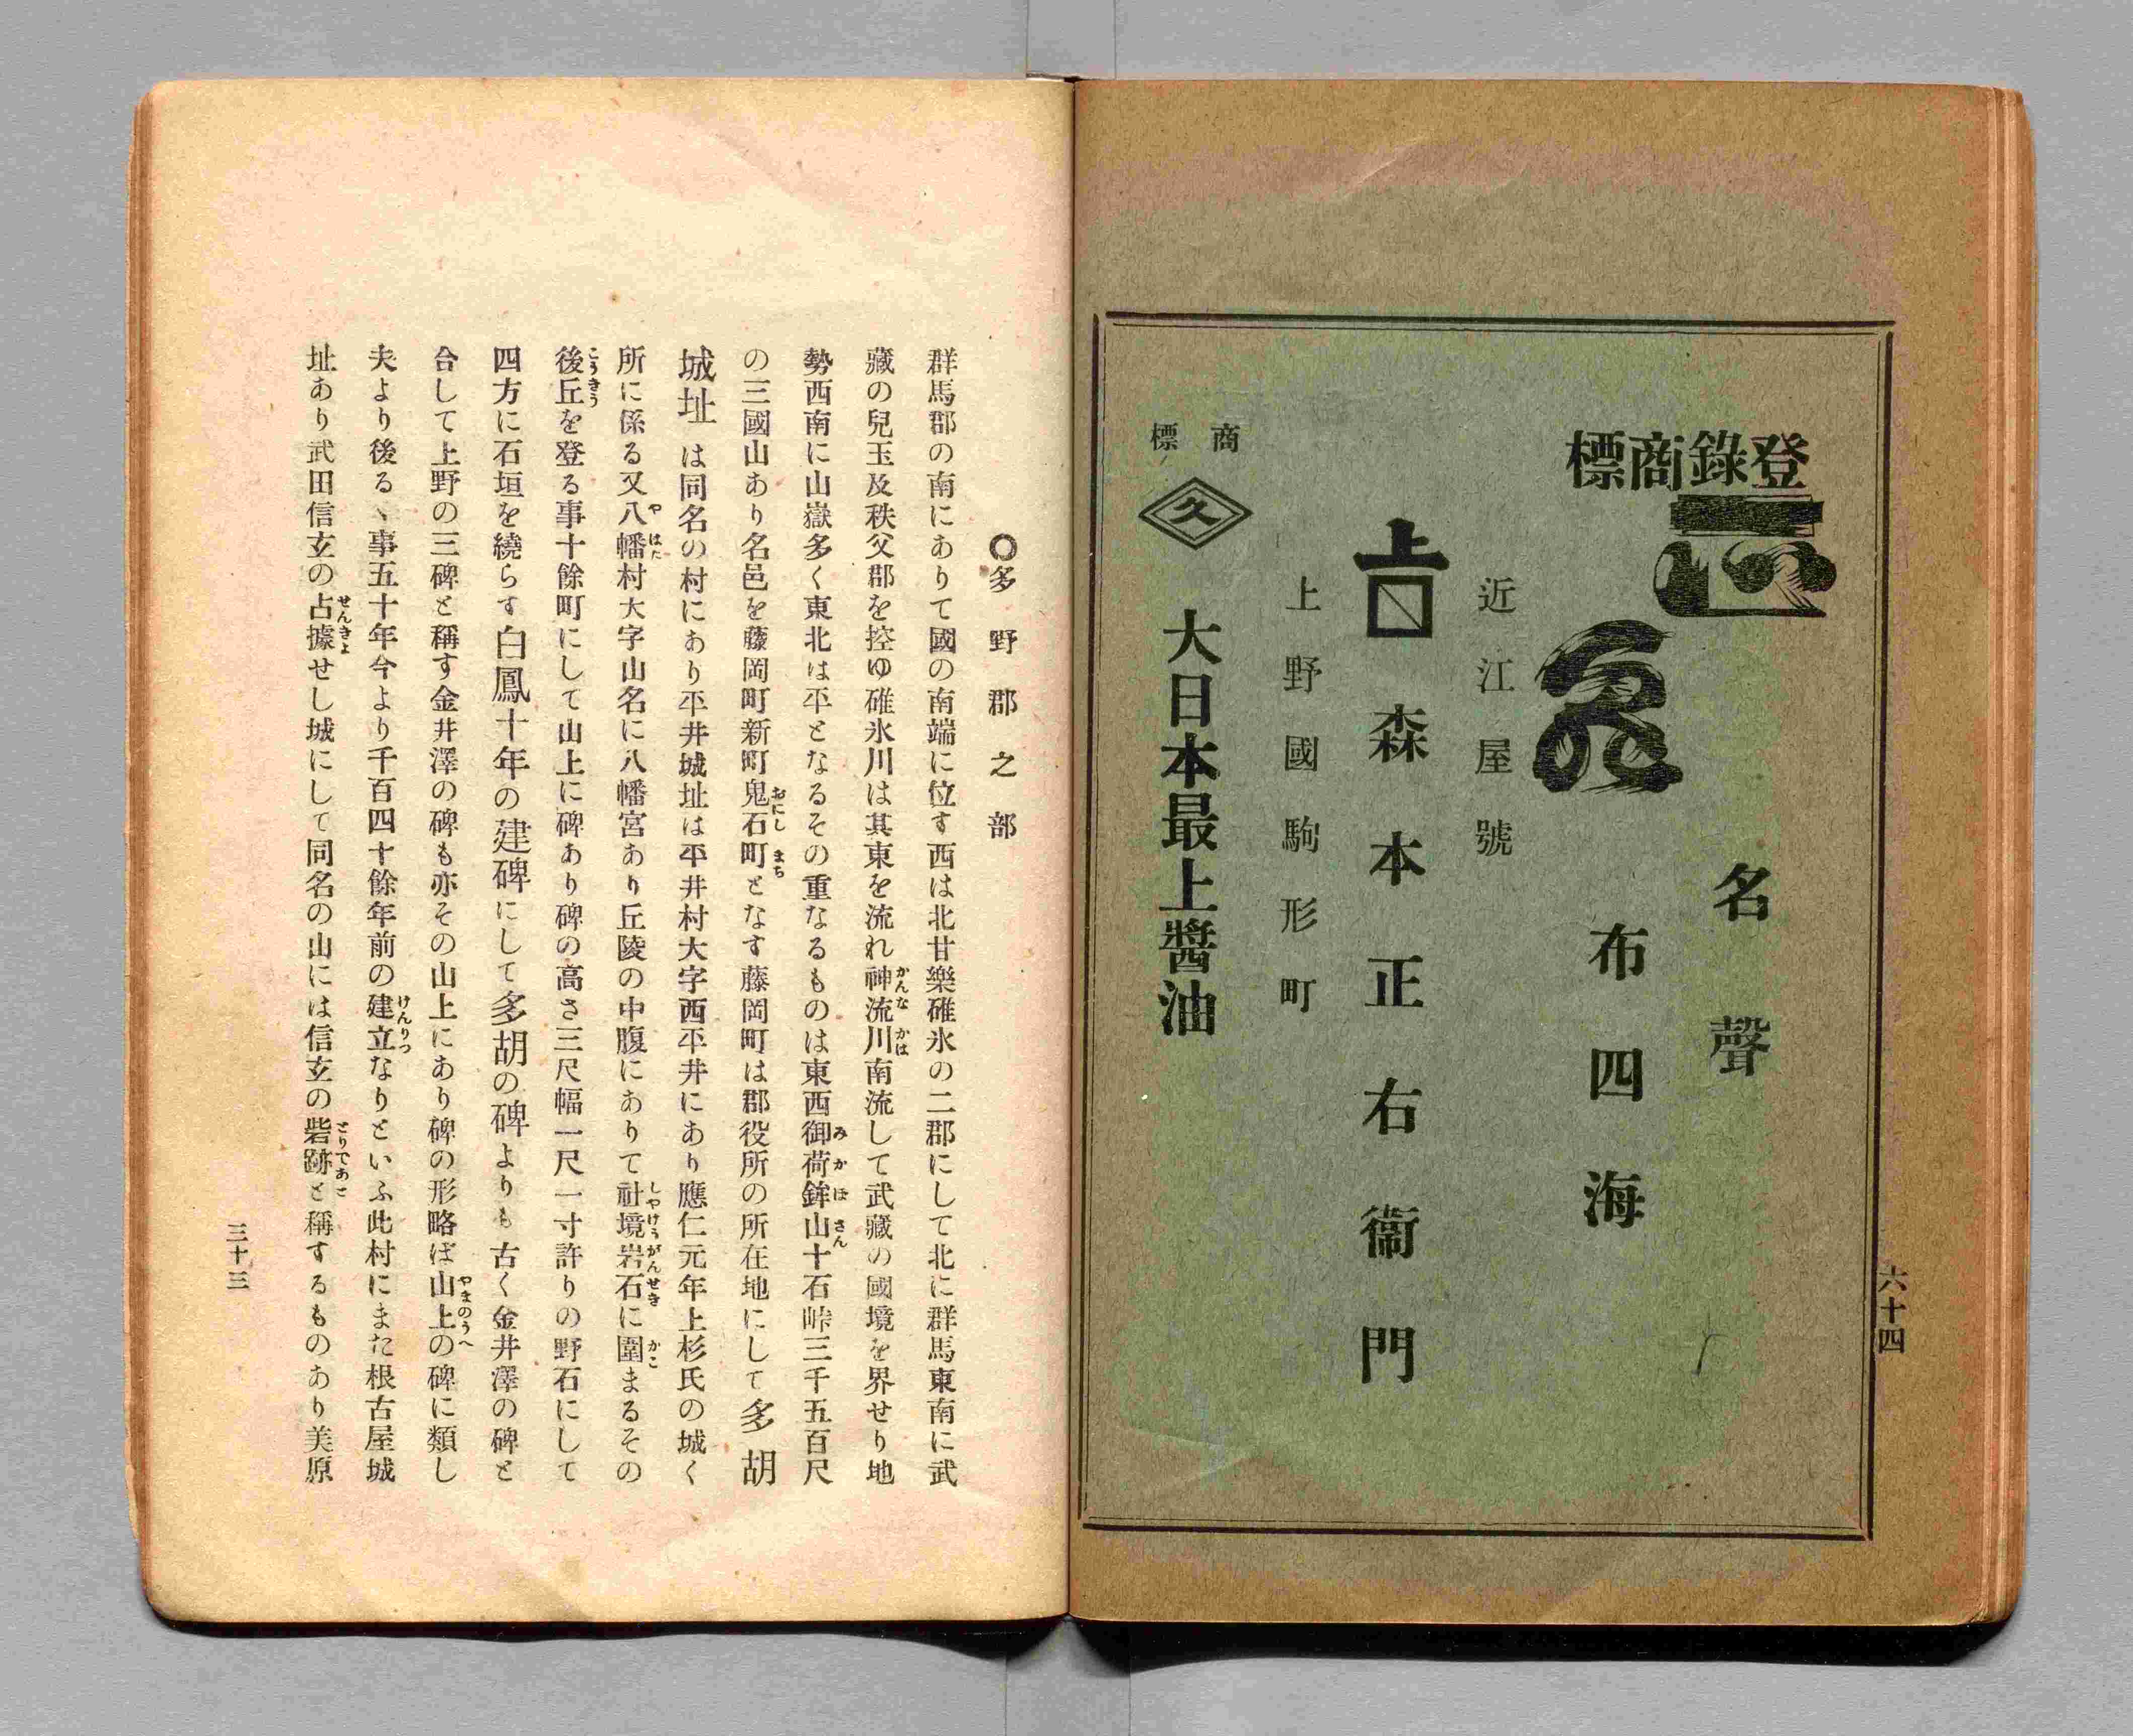 登錄商標
正宗
名聲
布四海
近江屋號
上
森本正右衞門
上野國駒形町
商標
久
大日本最上醬油
六十四
〇多野郡之部
群馬郡の南にありて國の南端に位す西は北甘樂碓氷の二郡にして北に群馬東南に武
藏の兒玉及秩父郡を控ゆ碓氷川は其東を流れ神流川南流して武藏の國境を界せり地
かんながは
勢西南に山嶽多く東北は平となるその重なるものは東西御荷鉾山十石峠三千五百尺
みかほさん
の三國山あり名邑を藤岡町新町鬼石町となす藤岡町は郡役所の所在地にして多胡
おにしまち
城址は同名の村にあり平井城址は平井村大字西平井にあり應仁元年上杉氏の城く
所に係る又八幡村大字山名に八幡宮あり丘陵の中腹にありて社境岩石に圍まるその
やはたしやけうがんせきかこ
後丘を登る事十餘町にして山上に碑あり碑の高さ三尺幅一尺一寸許りの野石にして
こうきう
四方に石垣を繞らす白鳳十年の建碑にして多胡の碑よりも古く金井澤の碑と
合して上野の三碑と稱す金井澤の碑も亦その山上にあり碑の形略ぼ山上の碑に類し
やまのうへ
夫より後るゝ事五十年今より千百四十餘年前の建立なりといふ此村にまた根古屋城
けんりつ
址あり武田信玄の占據せし城にして同名の山には信玄の砦跡と稱するものあり美原
せんきよとりであと
三十三